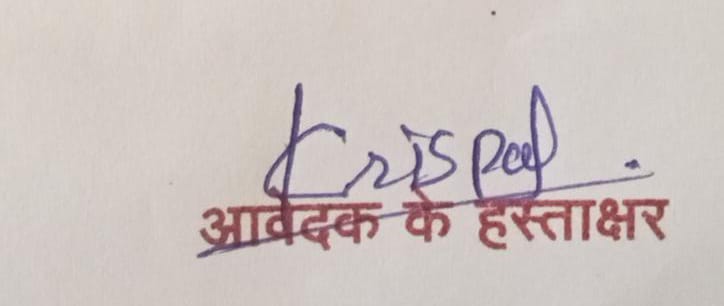 Krispal
आवेदक के हस्ताक्षर